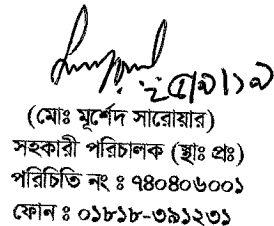 (মোঃ মূর্শেদ সারোয়ার)
সহকারী পরিচালক (স্থাঃ প্রঃ)
পরিচিতি নং ঃ ৭৪০৪০৬০০১
ফোন ঃ ০১৮১৮-৩৯১২৩১